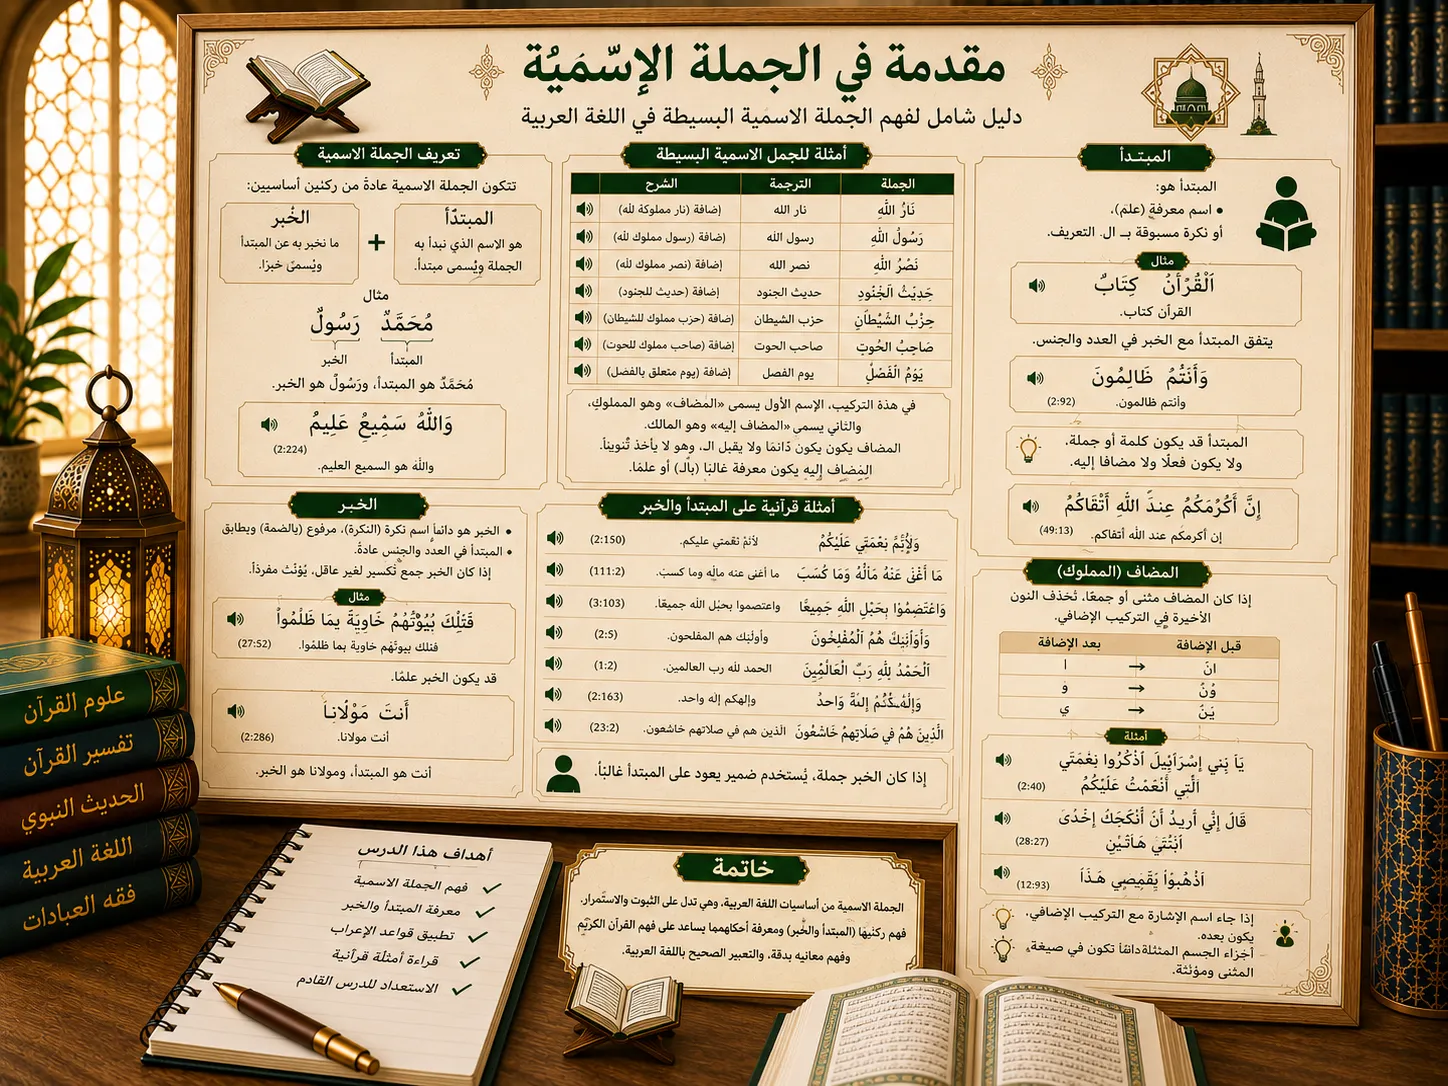 مقدمة في الجملة الإسّمَيُّة
دليل شامل لفهم الجملة الاسمية البسيطة في اللغة العربية
المبتدأ
المبتدأ هو:
• اسم معرفةٍ (علمَ)،
أو نكرة مسبوقة بـ ال. التعريف.
مثال
اَلْقُرْآنُ كِتَابٌ
القرآن كتاب.
يتفق المبتدأ مع الخبر في العدد والجنس.
وَأَنتُمْ ظَالِمُونَ
(2:92) وأنتم ظالمون.
المبتدأ قد يكون كلمة أو جملة،
ولا يكون فعلًا ولا مضافا إليه.
إِنَّ أَكْرَمَكُمْ عِندَ اللهِ أَتْقَاكُمْ
(49:13) إن أكرمكم عند الله أتقاكم.
المضاف (المملوك)
إذا كان المضاف مثنى أو جمعًا، تُحذف النون
الأخيرة في التركيب الإضافي.
قبل الإضافة بعد الإضافة
انْ → ا
وُنْ → و
يَنْ → ي
أمثلة
يَا بَنِي إِسْرَائِيلَ اَذْكُرُوا نِعْمَتِي
الَّتِي أَنْعَمْتُ عَلَيْكُمْ (2:40)
قَالَ إِنِّي أُرِيدُ أَنْ أُنْكِحَكَ إِحْدَى
اَبْنَتَي هَاتَيْنِ (28:27)
اَذْهَبُوْا بِقَمِيصِي هَذَا (12:93)
إذا جاء اسم الإشارة مع التركيب الإضافي،
يكون بعده.
أجزاء الجسم المثناة دائمًا تكون في صيغة
المثنى ومؤنثة.
أمثلة للجمل الاسمية البسيطة
الجملة الترجمة الشرح
نَارُ اللهِ نار الله إضافة (نار مملوكة لله)
رَسُولُ اللهِ رسول الله إضافة (رسول مملوك لله)
نَصْرُ اللهِ نصر الله إضافة (نصر مملوك لله)
حَدِيْثُ الْجُنُودِ حديث الجنود إضافة (حديث للجنود)
حِزْبُ الشَّيْطَانِ حزب الشيطان إضافة (حزب مملوك للشيطان)
صَاحِبُ الحُوتِ صاحب الحوت إضافة (صاحب مملوك للحوت)
يَوْمُ الْفَصْلِ يوم الفصل إضافة (يوم متعلق بالفضل)
في هذة التركيب، الإسم الأول يسمى «المضاف» وهو المملوك،
والثاني يسمى «المضاف إليه» وهو المالك.
المضاف يكون يكون دَائمًا ولا يقبل الـ، وهو لا يأخذ تُنوينًا.
المُضاف إليه يكون معرفة غالبًا (بألـ) أو علمًا.
تعريف الجملة الاسمية
تتكون الجملة الاسمية عادةً من ركنَين أساسيين:
المبتدّأ + الخُبر
هو الاسم الذي نبدأ به ما نخبر به عن المبتدأ
الجملة ويُسمى مبتدأ. ويُسمىْ خبرًا.
مثال
مُحَمَّدٌ رَسُولٌ
المبتدأ الخبر
مُحَمَّدٌ هو المبتدأ، ورَسُولٌ هو الخبر.
وَاللهُ سَمِيْعٌ عَلِيمٌ
(2:224)
والله هو السميع العليم.
الخبر
• الخبر هو دائماً اسم نكرة (النكرة)، مرفوع (بالضمة) ويطابق
• المبتدأ في العدد والجنس عادةً.
إذا كان الخبر جمع تُكسير لغير عاقل، يُؤنّث مفردًا.
مثال
فَتِلْكَ بُيُوْتُهُمْ خَاوِيَةً بِمَا ظَلَمُواْ
(27:52) فتلك بيوتهم خاوية بما ظلمُوا.
قد يكون الخبر علمًا.
أَنتَ مَوْلَانَا
(2:286) أنت مولانا.
أنت هو المبتدأ، ومولانا هو الخبر.
أمثلة قرآنية على المبتدأ والخبر
وَلِأُتِمَّ نِعْمَتِي عَلَيْكُمْ لأتمّ نعمتي عليكم. (2:150)
مَا أَغْنَىٰ عَنْهُ مَالُهُ وَمَا كَسَبَ ما أغنى عنه ماله وما كسب. (111:2)
وَاعْتَصِمُوْا بِحَبْلِ اللهِ جَمِيعًا واعتصموا بحبْل الله جميعًا. (3:103)
وَأُوْلَٰئِكَ هُمُ الْمُفْلِحُونَ وأولَئِك هم المفلحون. (2:5)
اَلْحَمْدُ لِلَّهِ رَبِّ الْعَالَمِيْنَ الحمد لله رب العالمين. (1:2)
وإلهكم إله واحد. (2:163)
الَّذِينَ هُمْ فِي صَلَاتِهِمْ خَاشْعُونَ الذين هم في صلاتهم خاشعون. (23:2)
إذا كان الخبر جملة، يُستخدم ضمير يعود على المبتدأ غالبًا.
علوم القرآن
تفسير القرآن
الحديث النبوي
اللغة العربية
فقه العبادات
أهداف هذا الدرس
فهم الجملة الاسمية ✓
معرفة المبتدأ والخبر ✓
تطبيق قواعد الإعراب ✓
قراءة أمثلة قرآنية ✓
الاستعداد للدرس القادم ✓
خاتمة
الجملة الاسمية من أساسيات اللغة العربية، وهي تدل على الثبوت والاستمرار.
فهم ركنَيها (المبتدأ والخُبر) ومعرفة أحكامهمما يساعد على فهم القرآن الكريم
وفهم معانيه بدقة، والتعبير الصحيح باللغة العربية.